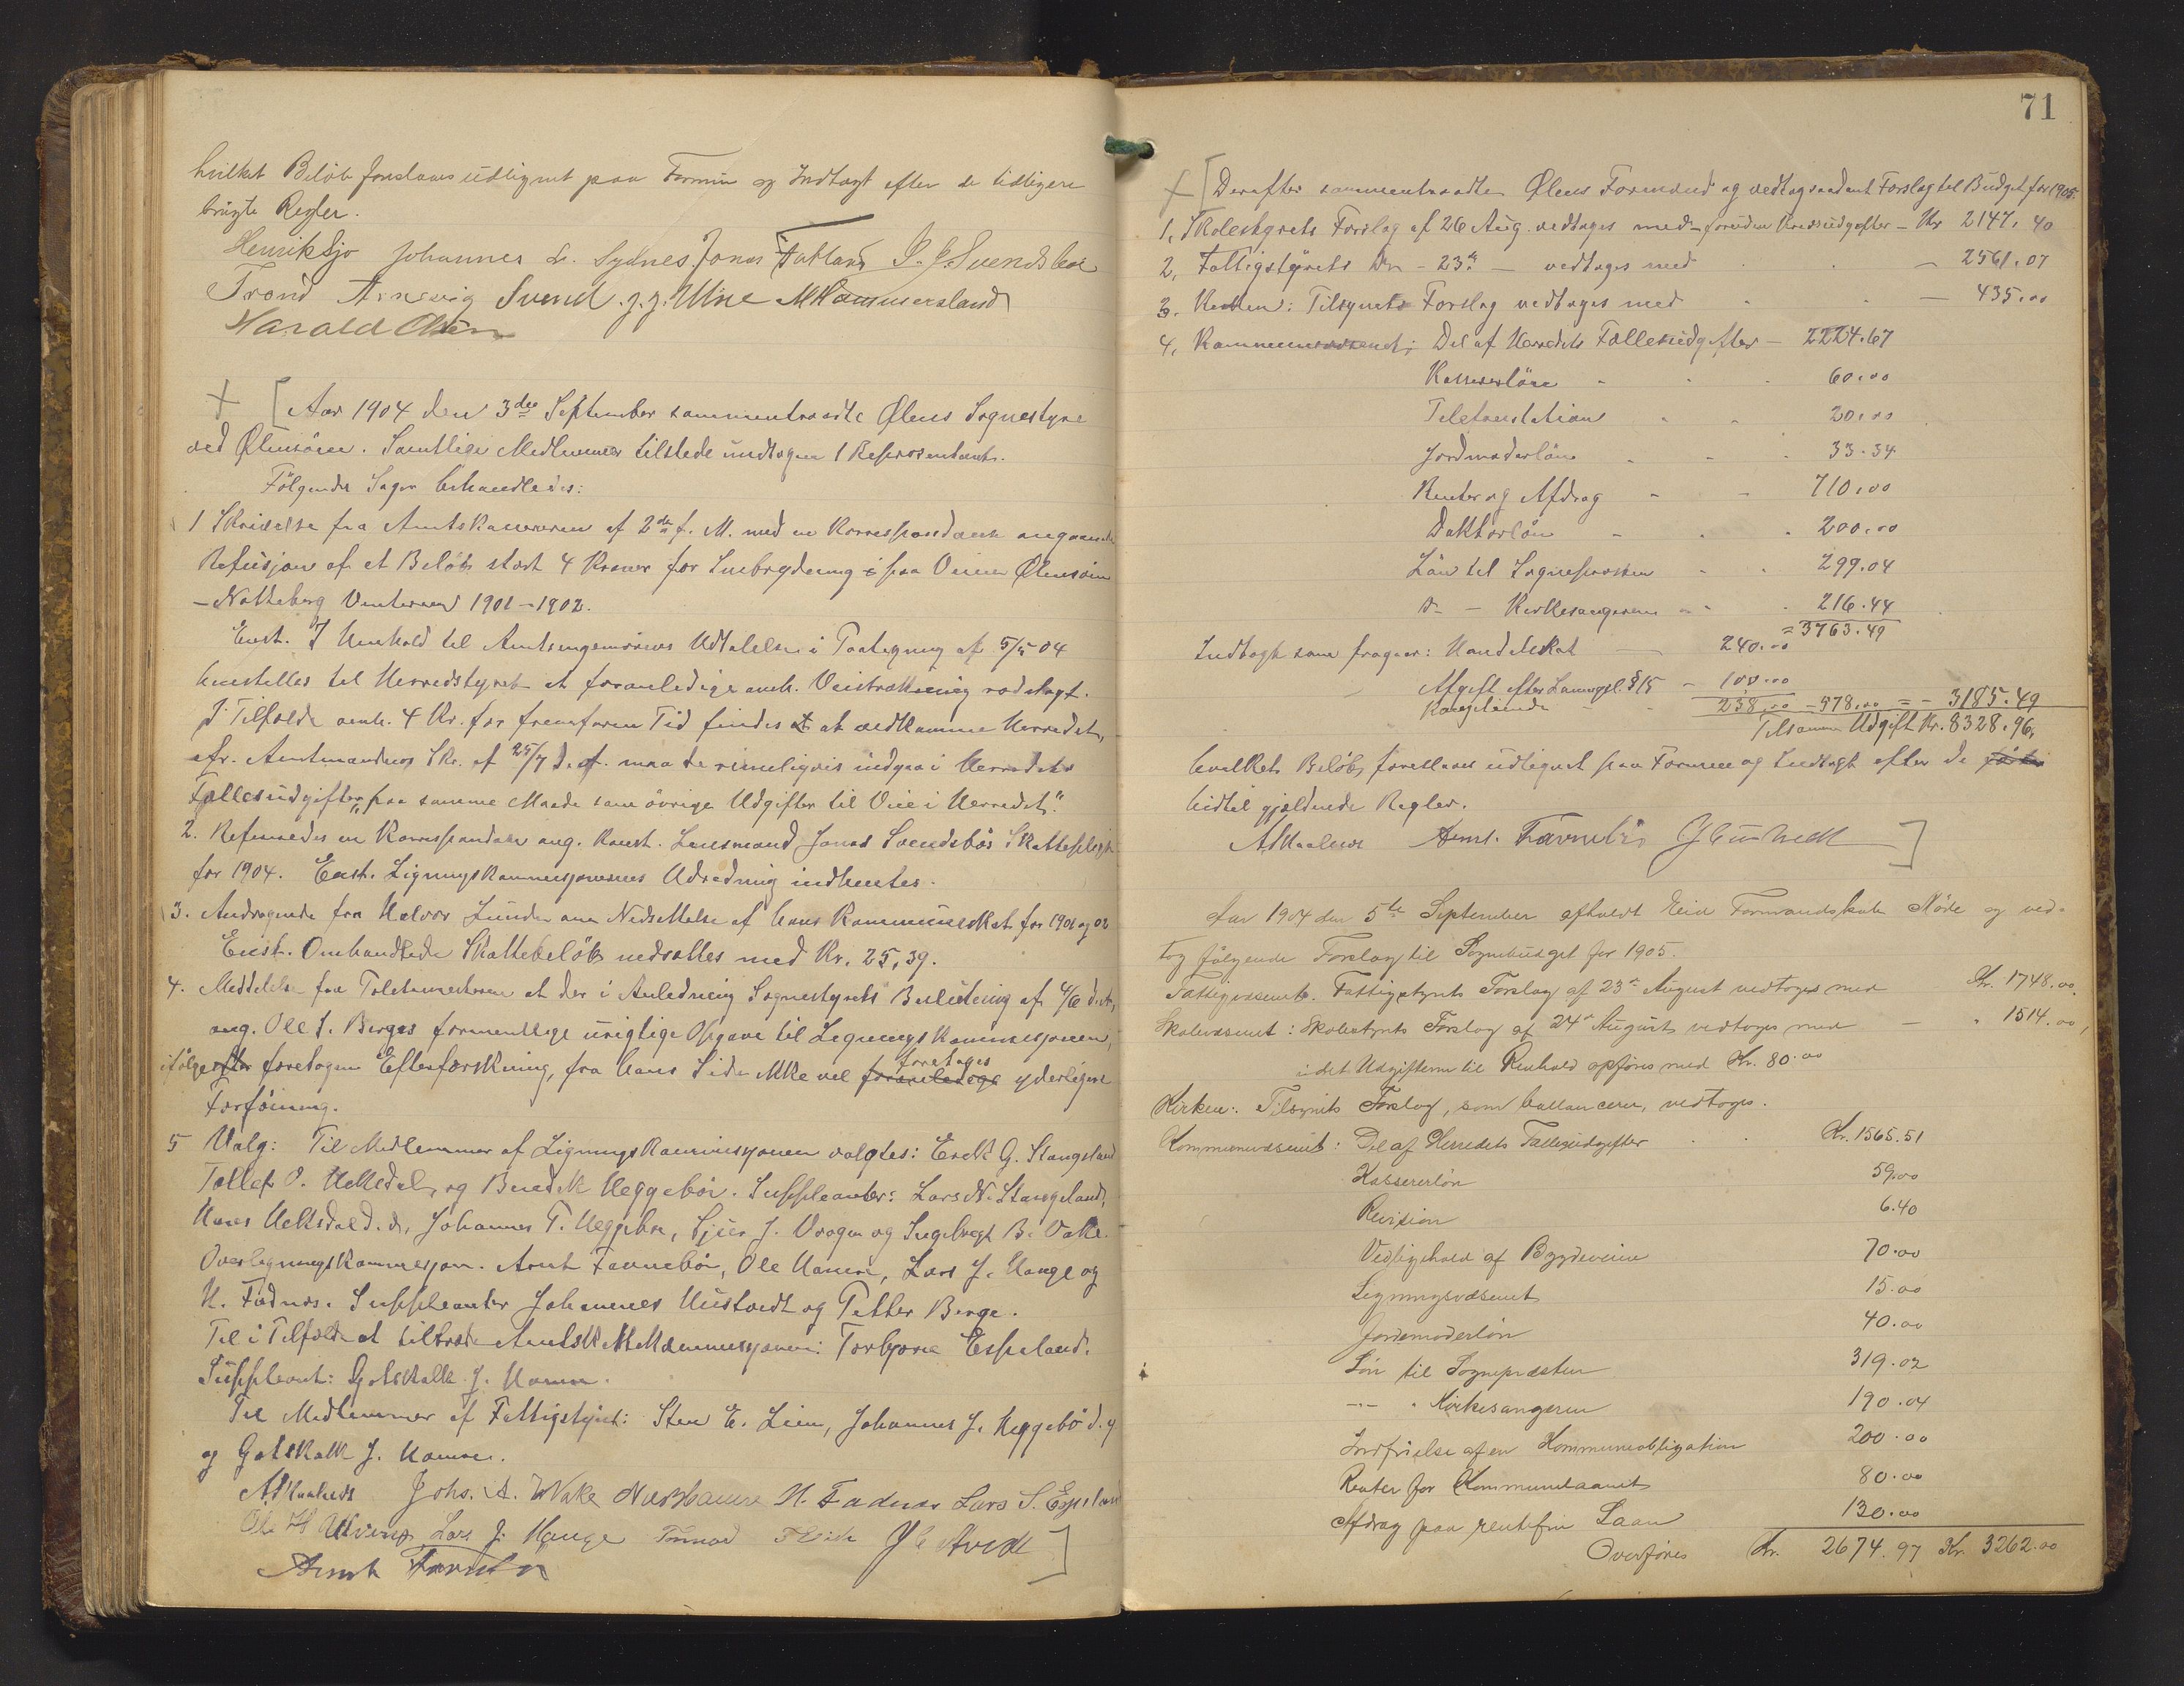 hvilket Beløb foreslaaes udlignet paa Formue og Indtægt efter de tidligere
brugte Regler.
Henrik Sjo Johannes L. Sydnes. Jonas Fatland J. J. Svendsboe
Trond Arnevig Svend J. J. Ulne M Hammersland
Harald Olsen
+ [ Aar 1904 den 3die September sammentraadte Ølens Sognestyre
ved Ølensøen. Samtlige Medlemmer tilstede undtagen 1 Representant.
Følgende Sager behandledes:
1 Skrivelse fra Amtskassereren af 2den f. M. med en Korrespondanse angaaende
Refusjon af et Beløb stort 4 Kroner for Snebrydning i paa Veien Ølensøen
– Natteberg Vinteren 1901–1902.
Enst. I Henhold til Amtsingeniørens Udtalelse i Paategning af 5/5 04
henstilles til Herredstyret at foranledige omh. Veistrækning nedlagt.
I Tilfælde omh. 4 Kr. for fremfaren Tid findes at at vedkomme Herredet,
cfr. Amtmandens Skr. af 25/7 d. A. maa de rimeligvis indgaa i Herredets
Fællesudgifter, "paa samme Maade som øvrige Udgifter til Veie i Herredet."
2. Refereredes en Korrespondase ang. Konst. Lensmand Jonas Svendsbøs Skattepligt
for 1904. Enst. Ligningskommisjonens Udredning indhentes.
3. Andragende fra Halvor Lunde om Nedsættelse af hans Kommuneskat for 1901 og 02
Enst. Omhandlede Skattebeløb nedsættes med Kr. 25,39.
4. Meddelelse fra at der i Anledning Sognestyrets Beslutning af 4/6 d. A.,
ang. Ole T. Berges formentlige urigtige Opgave til Ligningskommisjonen,
ifølge efter foretagen Efterforskning, fra hans Side ikke vil foranledige foretages yderligere
Forføining.
5 Valg: Til Medlemmer af Ligningskommisjonen valgtes: Erik G. Stangeland
Tollef O. Heltedal, og Benedik Heggebø. Suppleanter: Lars N. Stangeland,
Hans d. æ, Johannes T. Heggebø, Sjur J. Vaagen og Ingebregt B. Vake.
Overligningskommisjon. Arnt Favnebø, Ole Hamre, Lars J. Hauge og
H. Fadnes. Suppleanter Johannes Hustvedt og Petter Berge.
Til i Tilfælde at tiltræde Amtskattekommisjonen: Torbjørn Espeland.
Suppleant: Gotskalk J. Hamre.
Til Medlemmer af Fattigstyret: Sten E. Lien, Johannes J. Heggebø d. y
og Gotskalk J. Hamre.
Johs. A. Wake H. Fadnes Lars S. Espeland
Lars J. Hauge ]
Arnt Favnebø
71
+ [ Derefter sammentraadte Ølens Formænd og vedtog saadant Forslag til Budget for 1905.
1, Skolestyrets Forslag af 26 Aug. vedtages med – foruden Kredsudgifter – Kr 2147,40
2, Fattigstyrets Do – 23de – vedtages med – 2561.07
3. Kirken: Tilsynets Forslag vedtages med – 435.00
4, Kommunevæsenet; Del af Herredets Fællesudgifter – 2224.67
Kassererløn 60.00
Telefonstation 20.00
Jordmoderløn 33.34
Renter og Afdrag 710.00
Doktorløn 200.00
Løn til Sognepresten 299.04
Do – Kirkesangeren 216.44
= 3763.49
Indtægt som fragaar: Handelskat – 240.00
Afgift efter § 15 – 100.00
238.00 – 578.00 = – 3185.49
Tilsammen Udgift Kr. 8328.96,
hvilket Beløb foreslaaes udlignet paa Formue og Indtægt efter de
hidtil gjældende Regler.
Arnt. Favnebø ]
Aar 1904 den 5te September afholdt Eid Formandskab Møde og ved-
tog følgende Forslag til Sognebudget for 1905.
Fattigvæsenet. Fattigstyrets Forslag af 23de August vedtoges med Kr. 1748.00,
Skolevæsenet: Skolestyrets Forslag af 24de August vedtoges med – " 1514.00,
idet Udgifterne til Renhold opføres med Kr. 80.00
Kirken: Tilsynets Forslag, som ballancerer, vedtoges.
Kommunevæsenet: Del af Herredets Fællesudgifter Kr. 1565.51
Kassererløn 59.00
Revision 6.40
Vedligehold af Bygdeveiene 70.00
Ligningsvæsenet 15.00
Jordemoderløn 40.00
Løn til Sognepræsten 319.02
–"– " Kirkesangeren 190.04
Indfrielse af en Kommuneobligation 200.00
Renter for Kommunelaanet 80.00
Afdrag paa rentefrie Laan 130.00
Overføres Kr. 2674.97 Kr. 3262.00